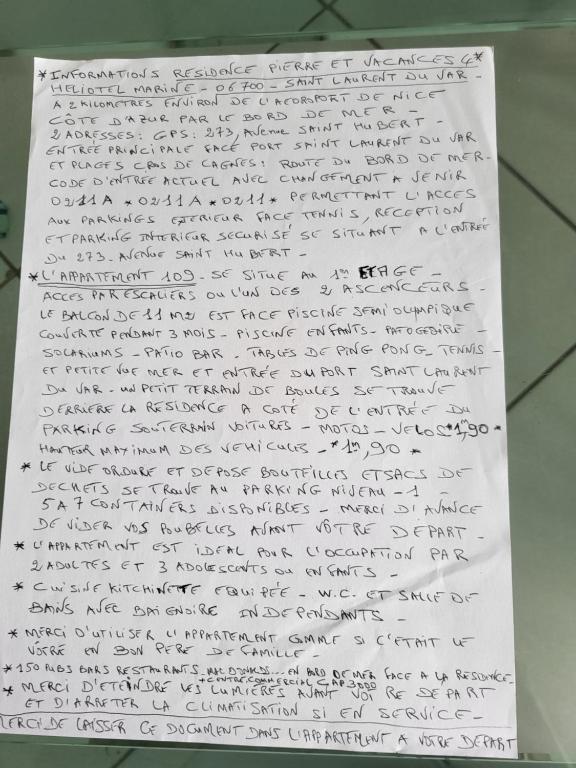 * INFORMATIONS RESIDENCE PIERRE ET VACANCES 4*
HELIOTEL MARINE - 06700 - SAINT LAURENT DU VAR -
A 2 KILOMETRES ENVIRON DE L'AEOROPORT DE NICE
CÔTE D'AZUR PAR LE BORD DE MER -
2 ADRESSES: GPS: 273, AVENUE SAINT HUBERT -
ENTRÉE PRINCIPALE FACE PORT SAINT LAURENT DU VAR
ET PLAGES CROS DE CAGNES: ROUTE DU BORD DE MER -
CODE D'ENTRÉE ACTUEL AVEC CHANGEMENT A VENIR
0211A * 0211A * 0211 * PERMETTANT L'ACCES
AUX PARKINGS EXTERIEUR FACE TENNIS, RECEPTION
ET PARKING INTERIEUR SECURISÉ SE SITUANT A L'ENTRÉE
DU 273 - AVENUE SAINT HUBERT -
* L'APPARTEMENT 109 - SE SITUE AU 1er ETAGE -
ACCES PAR ESCALIERS OU L'UN DES 2 ASCENCEURS -
LE BALCON DE 11 M2 EST FACE PISCINE SEMI OLYMPIQUE
COUVERTE PENDANT 3 MOIS - PISCINE ENFANTS - PATOGEOIRE -
SOLARIUMS - PATIO BAR - TABLES DE PING PONG - TENNIS -
ET PETITE VUE MER ET ENTRÉE DU PORT SAINT LAURENT
DU VAR - UN PETIT TERRAIN DE BOULES SE TROUVE
DERRIERE LA RÉSIDENCE A COTÉ DE L'ENTRÉE DU
PARKING SOUTERRAIN VOITURES - MOTOS - VELOS *1m,90 *
HAUTEUR MAXIMUM DES VEHICULES - *1m,90 *
* LE VIDE ORDURE ET DEPOSE BOUTEILLES ET SACS DE
DECHETS SE TROUVE AU PARKING NIVEAU - 1 -
5 A 7 CONTAINERS DISPONIBLES - MERCI D'AVANCE
DE VIDER VOS POUBELLES AVANT VÔTRE DEPART -
* L'APPARTEMENT EST IDEAL POUR L'OCCUPATION PAR
2 ADULTES ET 3 ADOLESCENTS OU ENFANTS -
* CUISINE KITCHINETTE EQUIPÉE - W.C. ET SALLE DE
BAINS AVEC BAIGNOIRE INDEPENDANTS -
* MERCI D'UTILISER L'APPARTEMENT COMME SI C'ETAIT LE
VÔTRE EN BON PERE DE FAMILLE -
* 150 PUBS BARS RESTAURANTS - MAC DONALDS... EN BORD DE MER FACE A LA RÉSIDENCE -
+ CENTRE COMMERCIAL CAP 3000
* MERCI D'ETEINDRE LES LUMIÈRES AVANT VOTRE DEPART
ET D'ARRETER LA CLIMATISATION SI EN SERVICE -
MERCI DE LAISSER CE DOCUMENT DANS L'APPARTEMENT A VOTRE DEPART